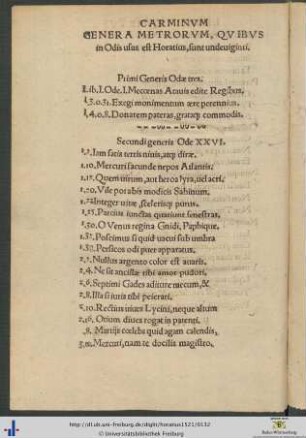 CARMINVM
GENERA METRORVM, QVIBVS
in Odis usus est Horatius, sunt undeuiginti.
Primi Generis Odæ tres.
Lib. I. Ode. I. Mecœnas Atauis edite Regibus,
3.0.31. Exegi monimentum ære perennius.
4.0.8. Donarem pateras, grataq; commodis.
Secundi generis Ode XXVI.
1,2, Iam satis terris niuis, atq; diræ.
1.10. Mercuri facunde nepos Atlantis.
1.12. Quem uirum, aut heroa lyra, uel acri.
1.20. Vile potabis modicis Sabinum,
1.22 Integer uitæ, scelerisq; purus.
1.25. Parcius iunctas quatiunt fenestras.
1.30. O Venus regina Gnidi, Paphique.
1.32. Poscimus si quid uacui sub umbra
1.38. Persicos odi puer apparatus.
2,2, Nullus argento color est auaris.
2,4. Ne sit ancillæ tibi amor pudori,
2,6. Septimi Gades aditure mecum, &
2,8. Illa si iuris tibi peierati.
2,10. Rectius uiues Lycini, neque altum
2,16, Otium diuos rogat in patenti.
3,8, Martijs cœlebs quid agam calendis,
3,11, Mercuri, nam te docilis magistro,
http://dl.ub.uni-freiburg.de/diglit/horatius1521/0132
© Universitätsbibliothek Freiburg
Baden-Württemberg